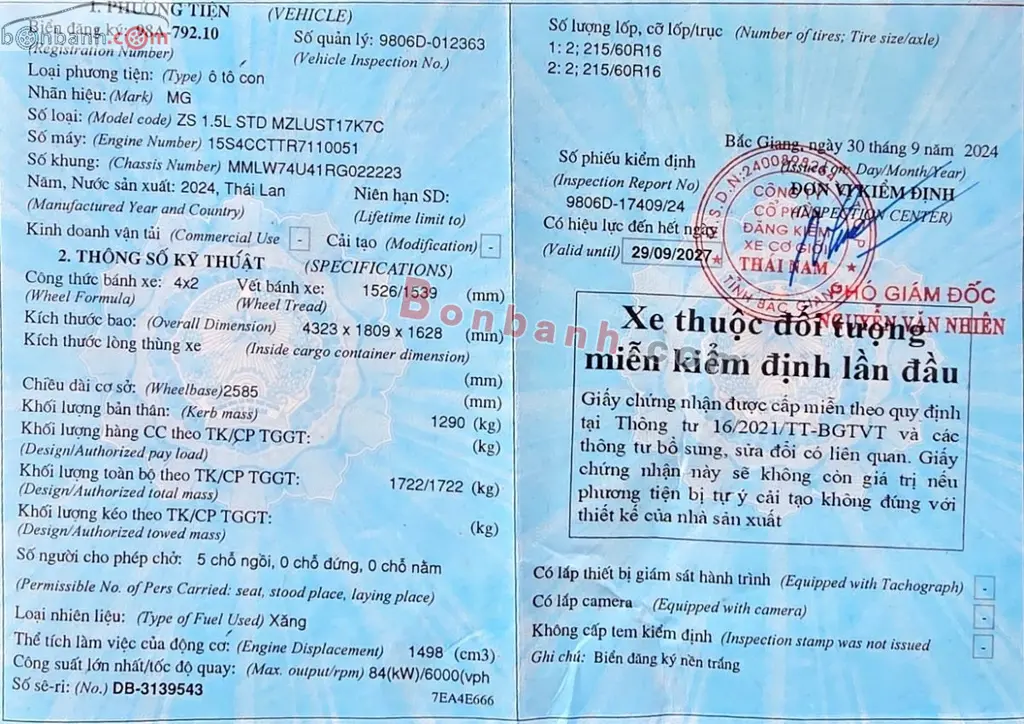 1. PHƯƠNG TIỆN (VEHICLE)
bonbanh.com
Biển đăng ký: 98A-792.10
(Registration Number)
Số quản lý: 9806D-012363
(Vehicle Inspection No.)
Loại phương tiện: (Type) ô tô con
Nhãn hiệu: (Mark) MG
Số loại: (Model code) ZS 1.5L STD MZLUST17K7C
Số máy: (Engine Number) 15S4CCTTR7110051
Số khung: (Chassis Number) MMLW74U41RG022223
Năm, Nước sản xuất: 2024, Thái Lan
(Manufactured Year and Country)
Niên hạn SD:
(Lifetime limit to)
Kinh doanh vận tải (Commercial Use - Cải tạo (Modification) -
2. THÔNG SỐ KỸ THUẬT (SPECIFICATIONS)
Công thức bánh xe: 4x2
(Wheel Formula)
Vết bánh xe: 1526/1539 (mm)
(Wheel Tread)
Kích thước bao: (Overall Dimension) 4323 x 1809 x 1628 (mm)
Kích thước lòng thùng xe (Inside cargo container dimension)
(mm)
Chiều dài cơ sở: (Wheelbase) 2585 (mm)
Khối lượng bản thân: (Kerb mass) 1290 (kg)
Khối lượng hàng CC theo TK/CP TGGT: (kg)
(Design/Authorized pay load)
Khối lượng toàn bộ theo TK/CP TGGT: 1722/1722 (kg)
(Design/Authorized total mass)
Khối lượng kéo theo TK/CP TGGT: (kg)
(Design/Authorized towed mass)
Số người cho phép chở: 5 chỗ ngồi, 0 chỗ đứng, 0 chỗ nằm
(Permissible No. of Pers Carried: seat, stood place, laying place)
Loại nhiên liệu: (Type of Fuel Used) Xăng
Thể tích làm việc của động cơ: (Engine Displacement) 1498 (cm3)
Công suất lớn nhất/tốc độ quay: (Max. output/rpm) 84(kW)/6000(vph
Số sê-ri: (No.) DB-3139543
7EA4E666
Số lượng lốp, cỡ lốp/trục (Number of tires; Tire size/axle)
1: 2; 215/60R16
2: 2; 215/60R16
Bắc Giang, ngày 30 tháng 9 năm 2024
(Issued on: Day/Month/Year)
Số phiếu kiểm định
(Inspection Report No)
9806D-17409/24
ĐƠN VỊ KIỂM ĐỊNH
(INSPECTION CENTER)
Có hiệu lực đến hết ngày
(Valid until) 29/09/2027
CÔNG TY
CỔ PHẦN
ĐĂNG KIỂM
XE CƠ GIỚI
THÁI NAM
TỈNH BẮC GIANG
PHÓ GIÁM ĐỐC
NGUYỄN VĂN NHIÊN
Xe thuộc đối tượng
miễn kiểm định lần đầu
Giấy chứng nhận được cấp miễn theo quy định
tại Thông tư 16/2021/TT-BGTVT và các
thông tư bổ sung, sửa đổi có liên quan. Giấy
chứng nhận này sẽ không còn giá trị nếu
phương tiện bị tự ý cải tạo không đúng với
thiết kế của nhà sản xuất
Có lắp thiết bị giám sát hành trình (Equipped with Tachograph) -
Có lắp camera (Equipped with camera) -
Không cấp tem kiểm định (Inspection stamp was not issued -
Ghi chú: Biển đăng ký nền trắng
Bonbanh.com